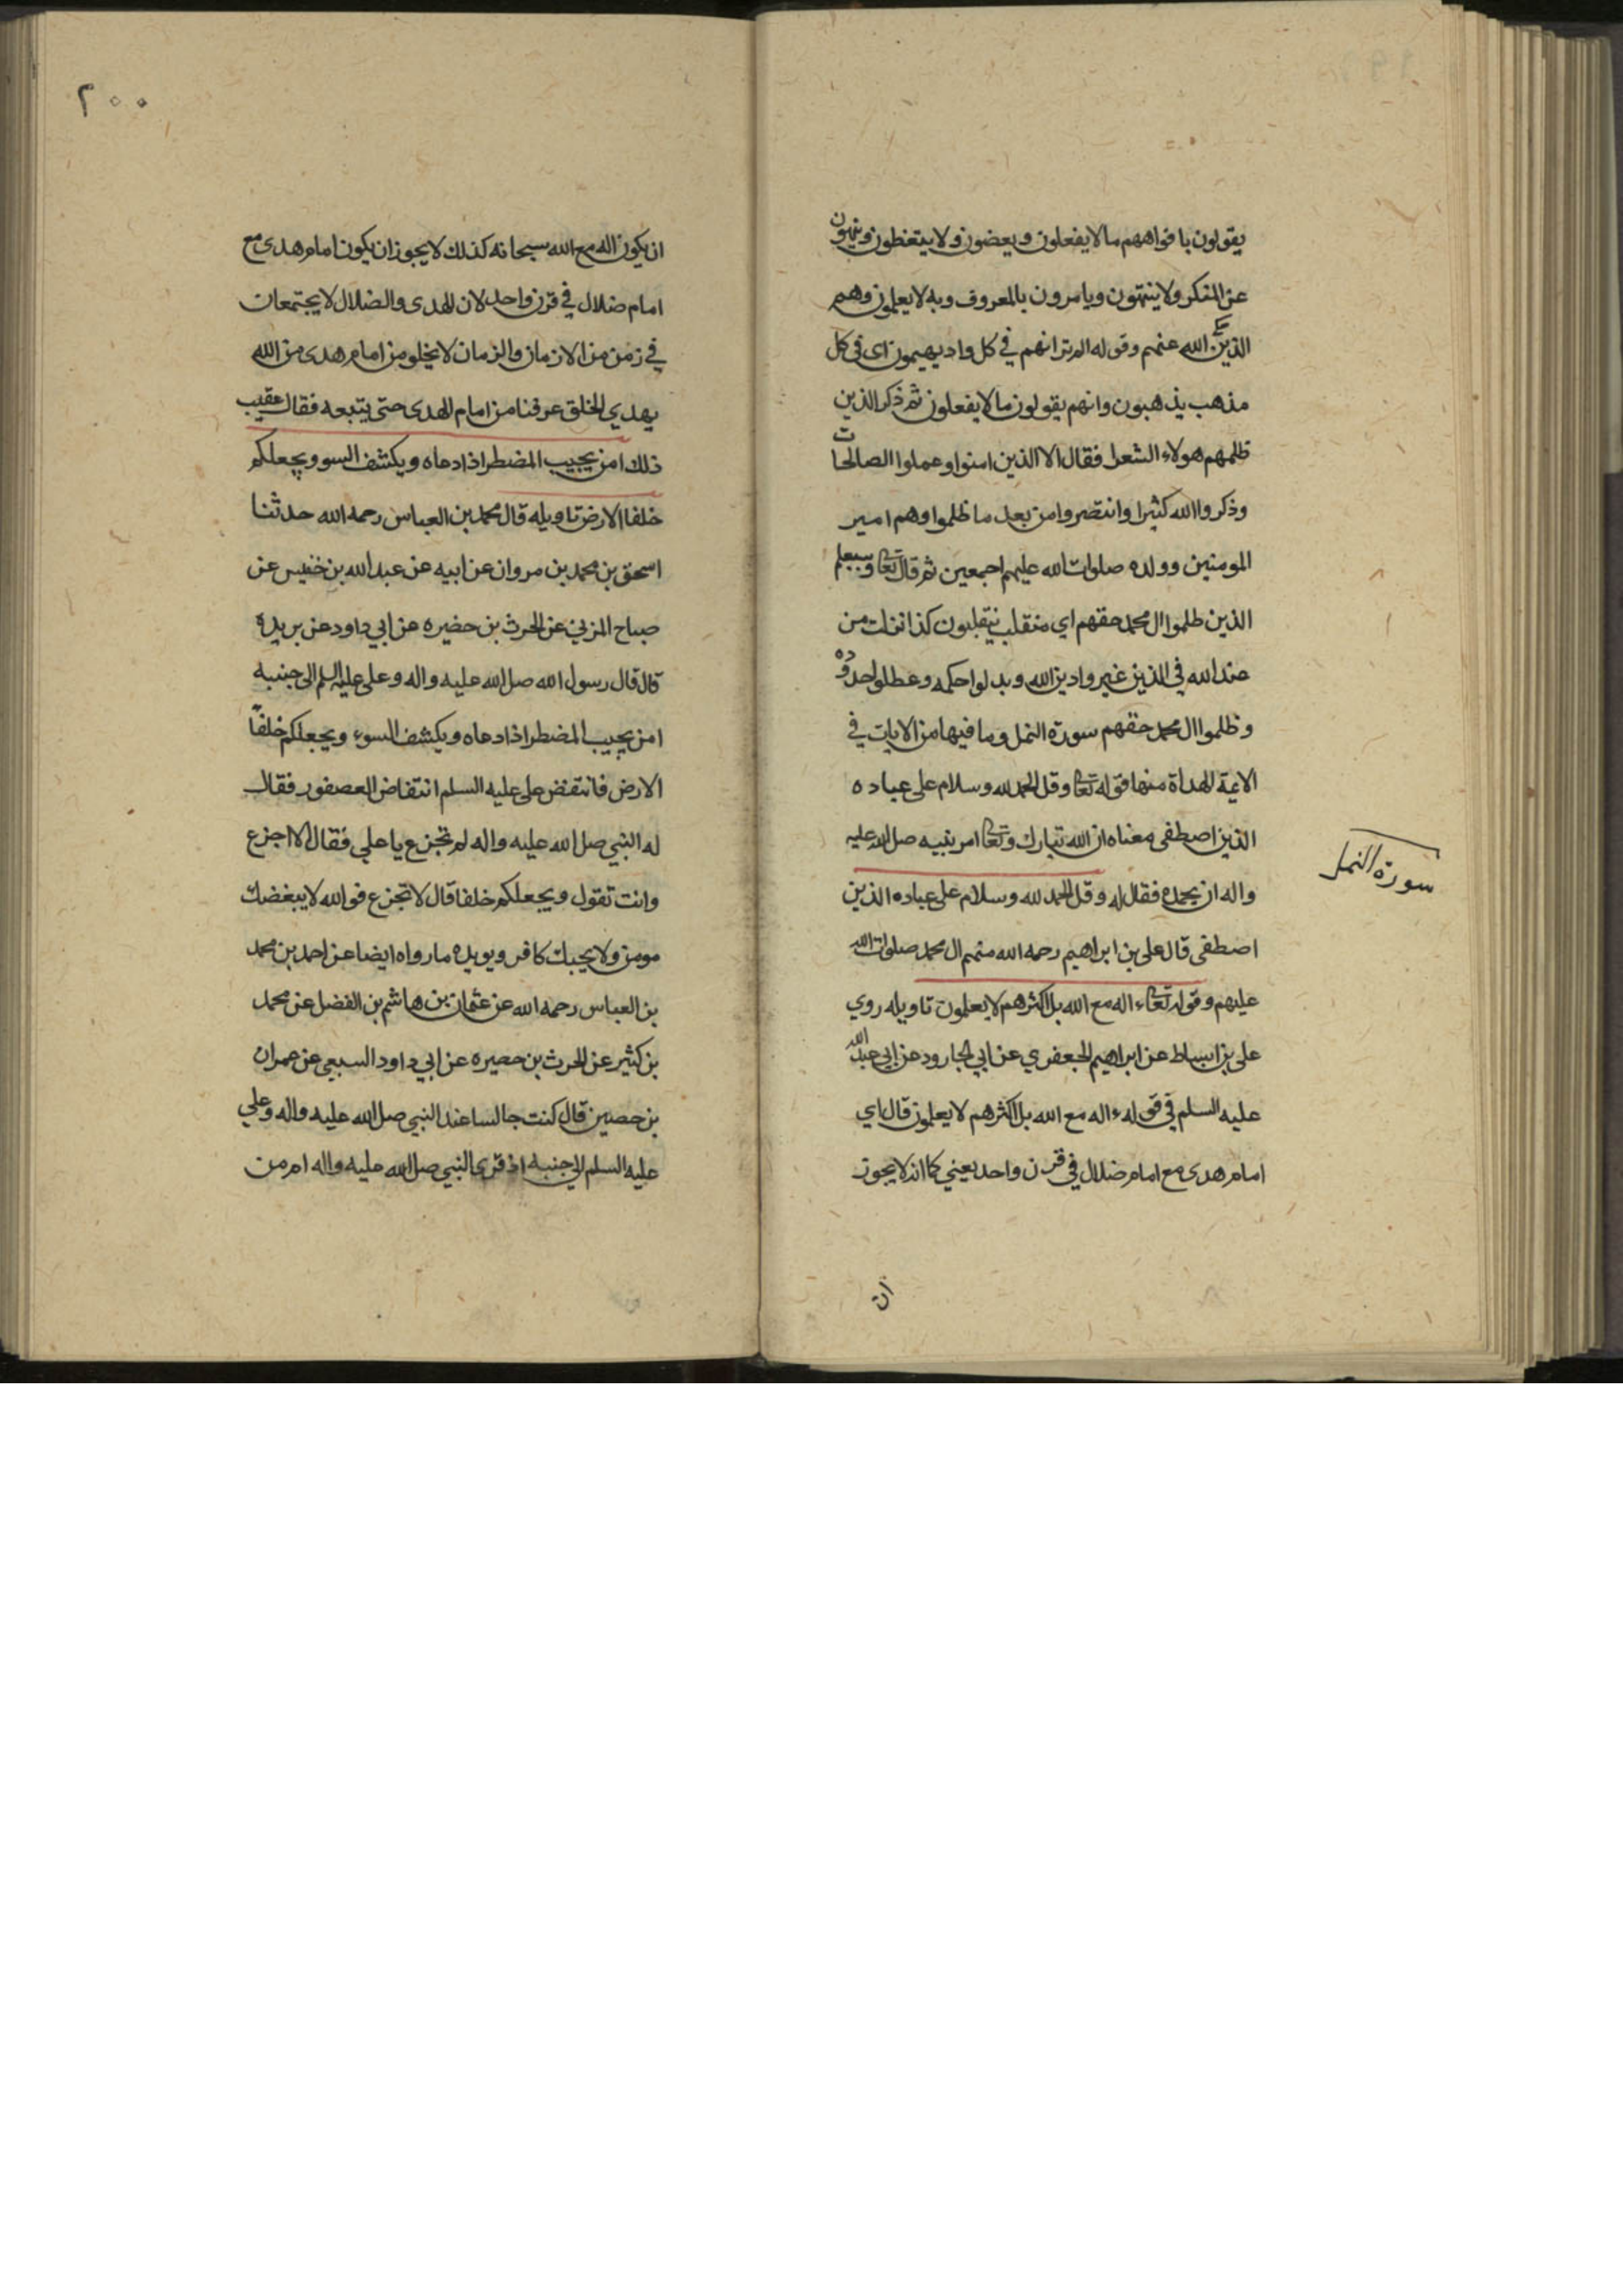 يقولون بافواههم ما لا يفعلون ويعضون ولا يتعظون وينهون
عن المنكر ولا ينتهون ويامرون بالمعروف وبه لا يعلمون وهم
الذين حكى الله عنهم وقوله الم تر انهم في كل واد يهيمون اى فى كل
مذهب يذهبون وانهم يقولون ما لا يفعلون ثم ذكر الذين
ظلمهم هولاء الشعرا فقال الا الذين امنوا وعملوا الصالحات
وذكروا الله كثيرا وانتصروا من بعد ما ظلموا وهم امير
المومنين وولده صلوات الله عليهم اجمعين ثم قال تعا وسيعلم
الذين ظلموا ال محمد حقهم اي منقلب ينقلبون كذا نزلت من
عند الله في الذين غيروا دين الله وبدلوا حكمه وعطلوا حدوده
وظلموا ال محمد حقهم سورة النمل وما فيها من الايات في
الايمة الهداة منها قوله تعا وقل الحمد لله وسلام على عباده
الذين اصطفى معناه ان الله تبارك وتعا امر نبيه صلى الله عليه
واله ان يحمده فقال له وقل الحمد لله وسلام على عباده الذين
اصطفى قال على بن ابراهيم رحمه الله منهم ال محمد صلوات الله
عليهم وقوله تعا ءاله مع الله بل اكثرهم لا يعلمون تاويله روي
على بن اسباط عن ابراهيم الجعفري عن ابي الجارود عن ابي عبد الله
عليه السلم في قوله ءاله مع الله بل اكثرهم لا يعلمون قال اي
امام هدى مع امام ضلال في قرن واحد يعني كما انه لا يجوز
ان
سورة النمل
٢٠٠
ان يكون اله مع الله سبحانه كذلك لا يجوز ان يكون امام هدى مع
امام ضلال في قرن واحد لان الهدى والضلال لا يجتمعان
في زمن من الازمان والزمان لا يخلو من امام هدى من الله
يهدي الخلق عرفنا من امام الهدى حتى يتبعه فقال عقيب
ذلك امن يجيب المضطر اذا دعاه ويكشف السو ويجعلكم
خلفا الارض تاويله قال محمد بن العباس رحمه الله حدثنا
اسحق بن محمد بن مروان عن ابيه عن عبد الله بن خنيس عن
صباح المزني عن الحرث بن حضيره عن ابي داود عن بريدة
قال قال رسول الله صلى الله عليه واله وعلى عليه السلم الى جنبه
امن يجيب المضطر اذا دعاه ويكشف السوء ويجعلكم خلفاً
الارض فانتفض على عليه السلم انتفاض العصفور فقال
له النبي صلى الله عليه واله لم تجزع يا علي فقال الا اجزع
وانت تقول ويجعلكم خلفا قال لا تجزع فوالله لا يبغضك
مومن ولا يحبك كافر ويويده ما رواه ايضا عن احمد بن محمد
بن العباس رحمه الله عن عثمان بن هاشم بن الفضل عن محمد
بن كثير عن الحرث بن حصيره عن ابي داود السبعى عن عمران
بن حصين قال كنت جالسا عند النبي صلى الله عليه واله وعلي
عليه السلم الى جنبه اذ قرى النبي صلى الله عليه واله ام من